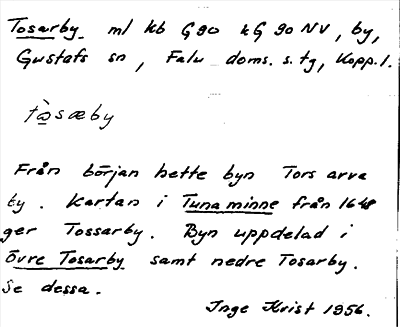 Tosarby ml kb G90 kG 90 NV, by,
Gustafs sn, Falu doms. s. tg, Kopp. l.
tò̱sæby
Från början hette byn Tors arva
by. Kartan i Tuna minne från 1648
ger Tossarby. Byn uppdelad i
övre Tosarby samt nedre Tosarby.
Se dessa.
Inge Krist 1956.